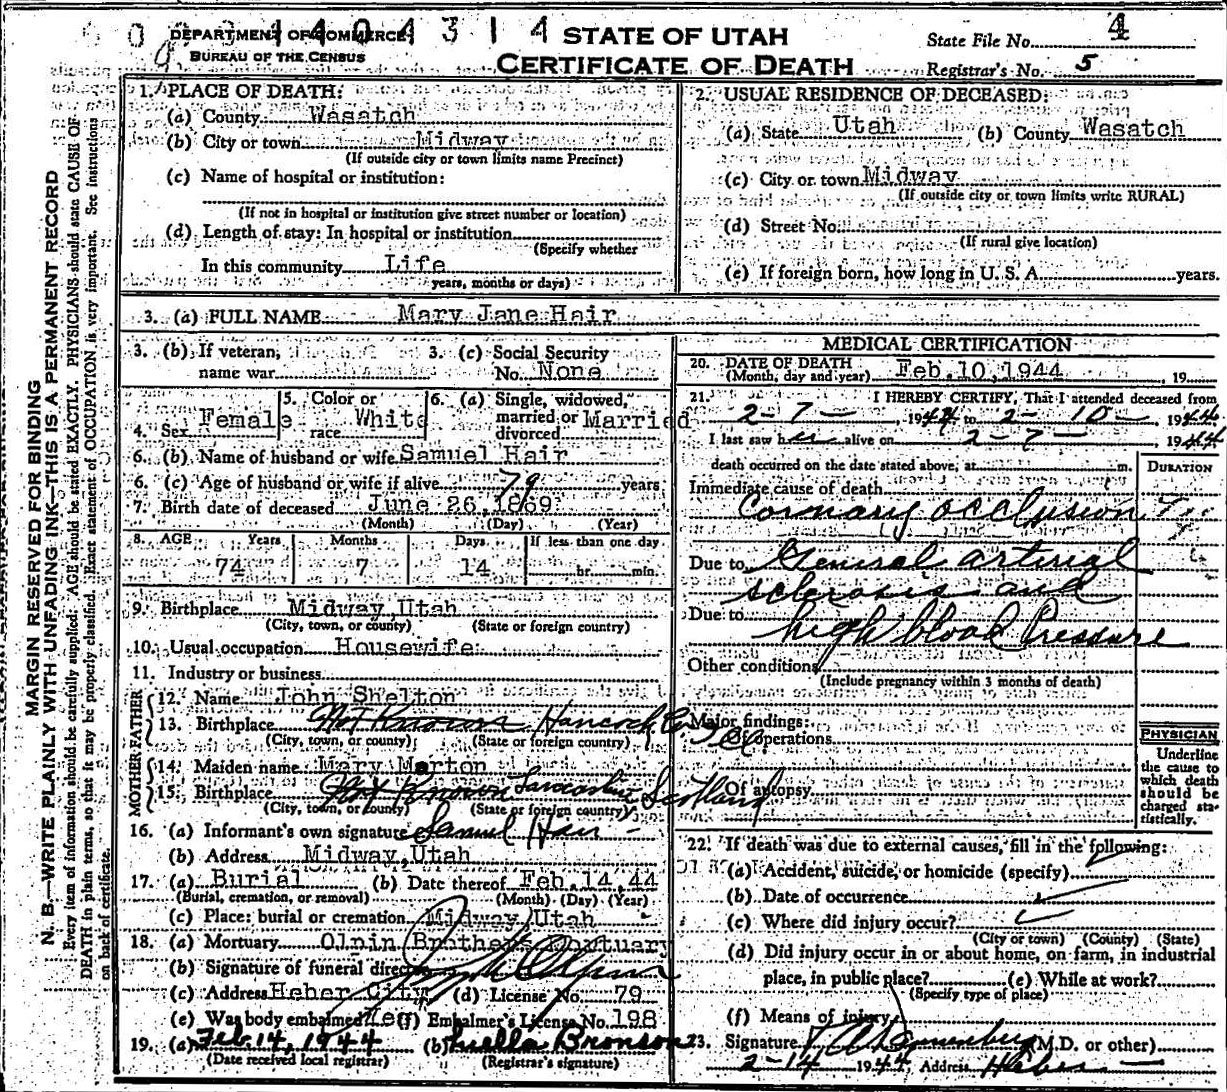 DEPARTMENT OF COMMERCE
BUREAU OF THE CENSUS
STATE OF UTAH
CERTIFICATE OF DEATH
State File No. 4
Registrar's No. 5
MARGIN RESERVED FOR BINDING
N. B.—WRITE PLAINLY WITH UNFADING INK—THIS IS A PERMANENT RECORD
Every item of information should be carefully supplied. AGE should be stated EXACTLY. PHYSICIANS should state CAUSE OF
DEATH in plain terms, so that it may be properly classified. Exact statement of OCCUPATION is very important. See instructions
on back of certificate.
1. PLACE OF DEATH:
(a) County Wasatch
(b) City or town Midway
(If outside city or town limits name Precinct)
(c) Name of hospital or institution:
(If not in hospital or institution give street number or location)
(d) Length of stay: In hospital or institution
(Specify whether
In this community Life
years, months or days)
2. USUAL RESIDENCE OF DECEASED:
(a) State Utah (b) County Wasatch
(c) City or town Midway
(If outside city or town limits write RURAL)
(d) Street No.
(If rural give location)
(e) If foreign born, how long in U. S. A. years.
3. (a) FULL NAME Mary Jane Hair
3. (b) If veteran, name war
3. (c) Social Security No. None
4. Sex Female
5. Color or race White
6. (a) Single, widowed, married or divorced Married
6. (b) Name of husband or wife Samuel Hair
6. (c) Age of husband or wife if alive 79 years
7. Birth date of deceased June 26, 1869
(Month) (Day) (Year)
8. AGE Years Months Days If less than one day
74 7 14 hr. min.
9. Birthplace Midway, Utah
(City, town, or county) (State or foreign country)
10. Usual occupation Housewife
11. Industry or business
FATHER
12. Name John Shelton
13. Birthplace Not Known Hancock Co
(City, town, or county) (State or foreign country)
MOTHER
14. Maiden name Mary Morton
15. Birthplace Not Known Lancashire Scotland
(City, town, or county) (State or foreign country)
16. (a) Informant's own signature Samuel Hair
(b) Address Midway, Utah
17. (a) Burial (b) Date thereof Feb. 14, 44
(Burial, cremation, or removal) (Month) (Day) (Year)
(c) Place: burial or cremation Midway, Utah
18. (a) Mortuary Olpin Brothers Mortuary
(b) Signature of funeral director
(c) Address Heber City (d) License No. 79
(e) Was body embalmed? Yes (f) Embalmer's License No. 198
19. (a) Feb. 14, 1944 (b) Luella Bronson
(Date received local registrar) (Registrar's signature)
MEDICAL CERTIFICATION
20. DATE OF DEATH
(Month, day and year) Feb. 10, 1944, 19
21. I HEREBY CERTIFY, That I attended deceased from
2-7- 1944 to 2-10- 1944
I last saw her alive on 2-7- 1944
death occurred on the date stated above, at m.
DURATION
Immediate cause of death
Coronary occlusion
Due to General arterial
sclerosis and
Due to high blood Pressure
Other conditions
(Include pregnancy within 3 months of death)
Major findings:
Of operations
Of autopsy
PHYSICIAN
Underline
the cause to
which death
should be
charged sta-
tistically.
22. If death was due to external causes, fill in the following:
(a) Accident, suicide, or homicide (specify)
(b) Date of occurrence
(c) Where did injury occur?
(City or town) (County) (State)
(d) Did injury occur in or about home, on farm, in industrial
place, in public place? (e) While at work?
(Specify type of place)
(f) Means of injury
23. Signature (M.D. or other)
2-14 1944 Address Heber